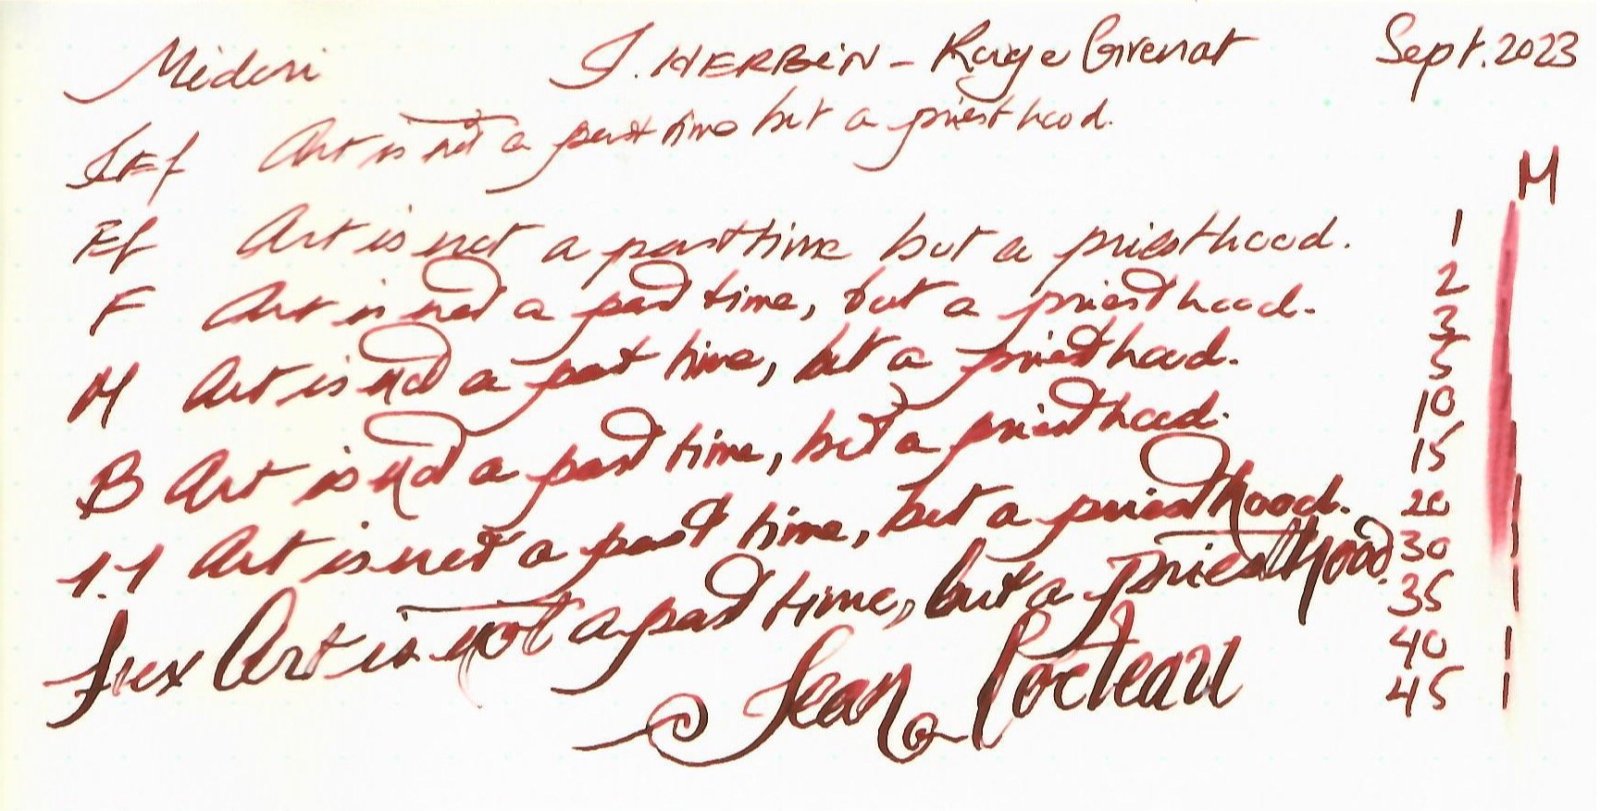 Midori J. HERBIN - Rouge Grenat Sept. 2023
Art is not a past time but a priesthood.
Ef Art is not a past time but a priesthood.
F Art is not a past time, but a priesthood.
M Art is not a past time, but a priesthood.
B Art is not a past time, but a priesthood.
1.1 Art is not a past time, but a priesthood.
Art is not a past time, but a priesthood.
Jean Cocteau
M
1
2
3
5
10
15
20
30
35
40
45